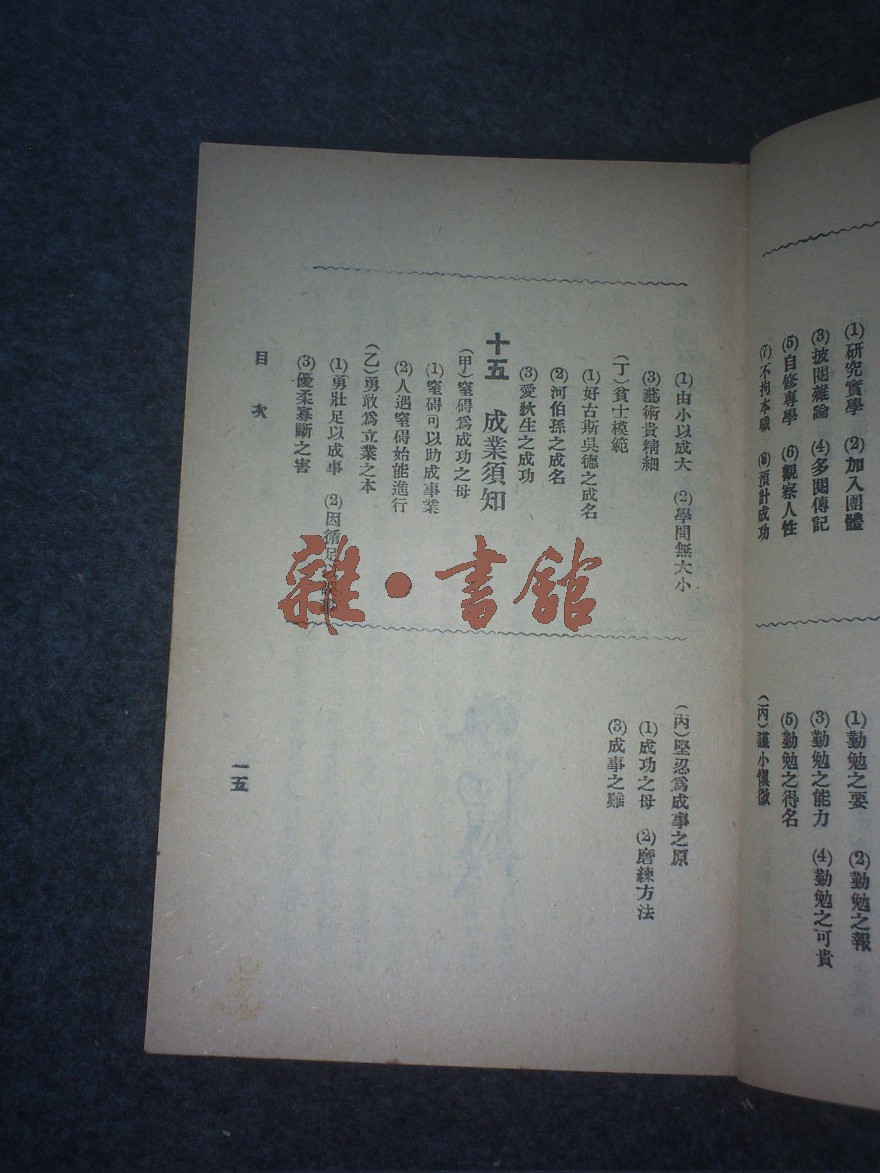 (1)研究實學　(2)加入團體
(3)披閱雜論　(4)多閱傳記
(5)自修專學　(6)觀察人性
(7)不拘本職　(8)預計成功
(1)勤勉之要　(2)勤勉之報
(3)勤勉之能力　(4)勤勉之可貴
(5)勤勉之得名
(丙)謹小愼微
(1)由小以成大　(2)學問無大小
(3)藝術貴精細
(丁)貧士模範
(1)好古斯吳德之成名
(2)河伯孫之成名
(3)愛狄生之成功
十五　成業須知
(甲)窒碍爲成功之母
(1)窒碍可以助成事業
(2)人遇窒碍始能進行
(乙)勇敢爲立業之本
(1)勇壯足以成事　(2)因循足
(3)優柔寡斷之害
(丙)堅忍爲成事之原
(1)成功之母　(2)磨練方法
(3)成事之難
目次
一五
雜·書館